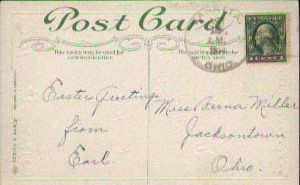 Post Card
This space may be used for
communication.
A.M.
OHIO
1 CENT 1
Easter Greetings
from
Earl.
Miss Verna Miller
Jacksontown
Ohio.